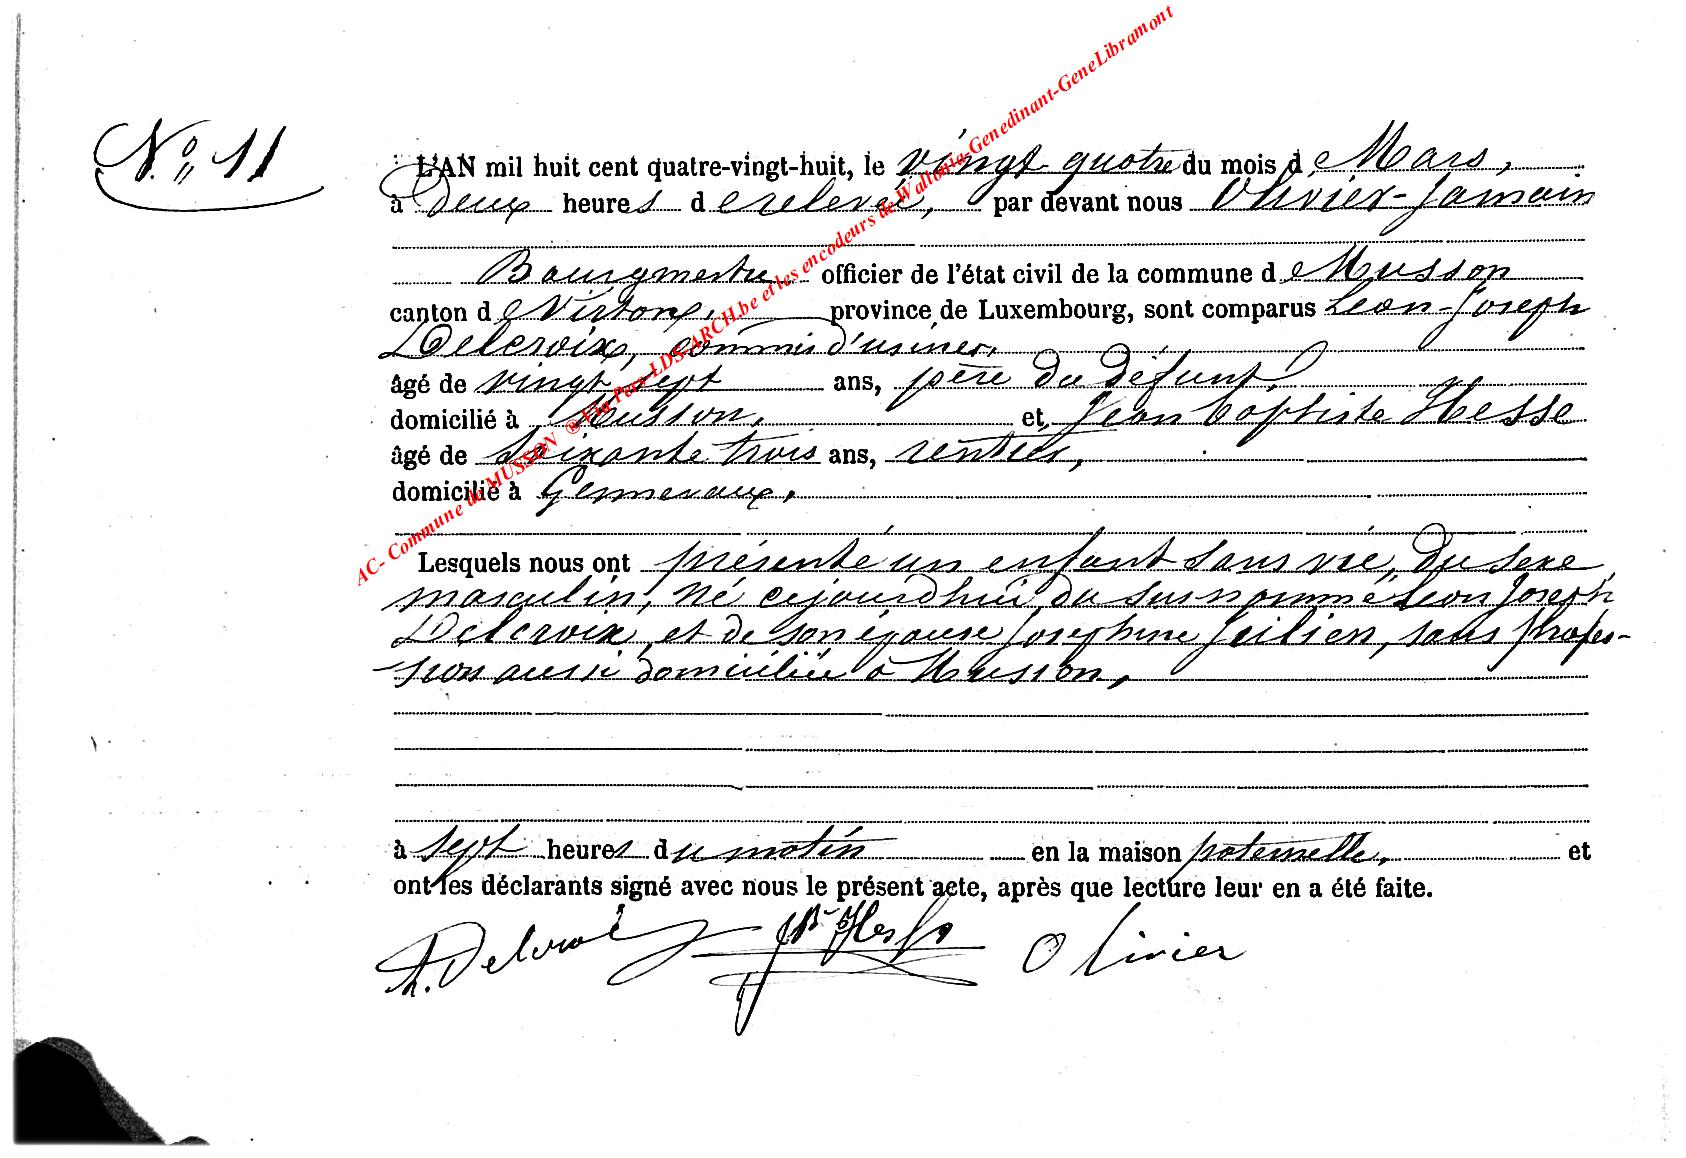 N° 11
L'AN mil huit cent quatre-vingt-huit, le vingt-quatre du mois de Mars,
à Deux heures de relevée, par devant nous Olivier-Jamain
Bourgmestre officier de l'état civil de la commune de Musson
canton de Virton, province de Luxembourg, sont comparus Léon-Joseph
Delcroix, commis d'usines,
âgé de vingt sept ans, père du défunt,
domicilié à Musson, et Jean Baptiste Hesse
âgé de soixante trois ans, rentier,
domicilié à Gennevaux,
Lesquels nous ont présenté un enfant sans vie, du sexe
masculin, né cejourd'hui, du susnommé Léon Joseph
Delcroix, et de son épouse Josephine, sans profes-
sion aussi domiciliée à Musson,
à sept heures du matin en la maison paternelle, et
ont les déclarants signé avec nous le présent acte, après que lecture leur en a été faite.
Delcroix JB Hesse Olivier
AC- Commune de MUSSON ® Via Pass-LDS-ARCH.be et les encodeurs de Wallonia-Genedinant-GeneLibramont